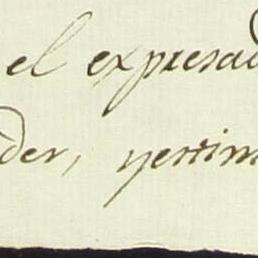 el expresad
der, y estim